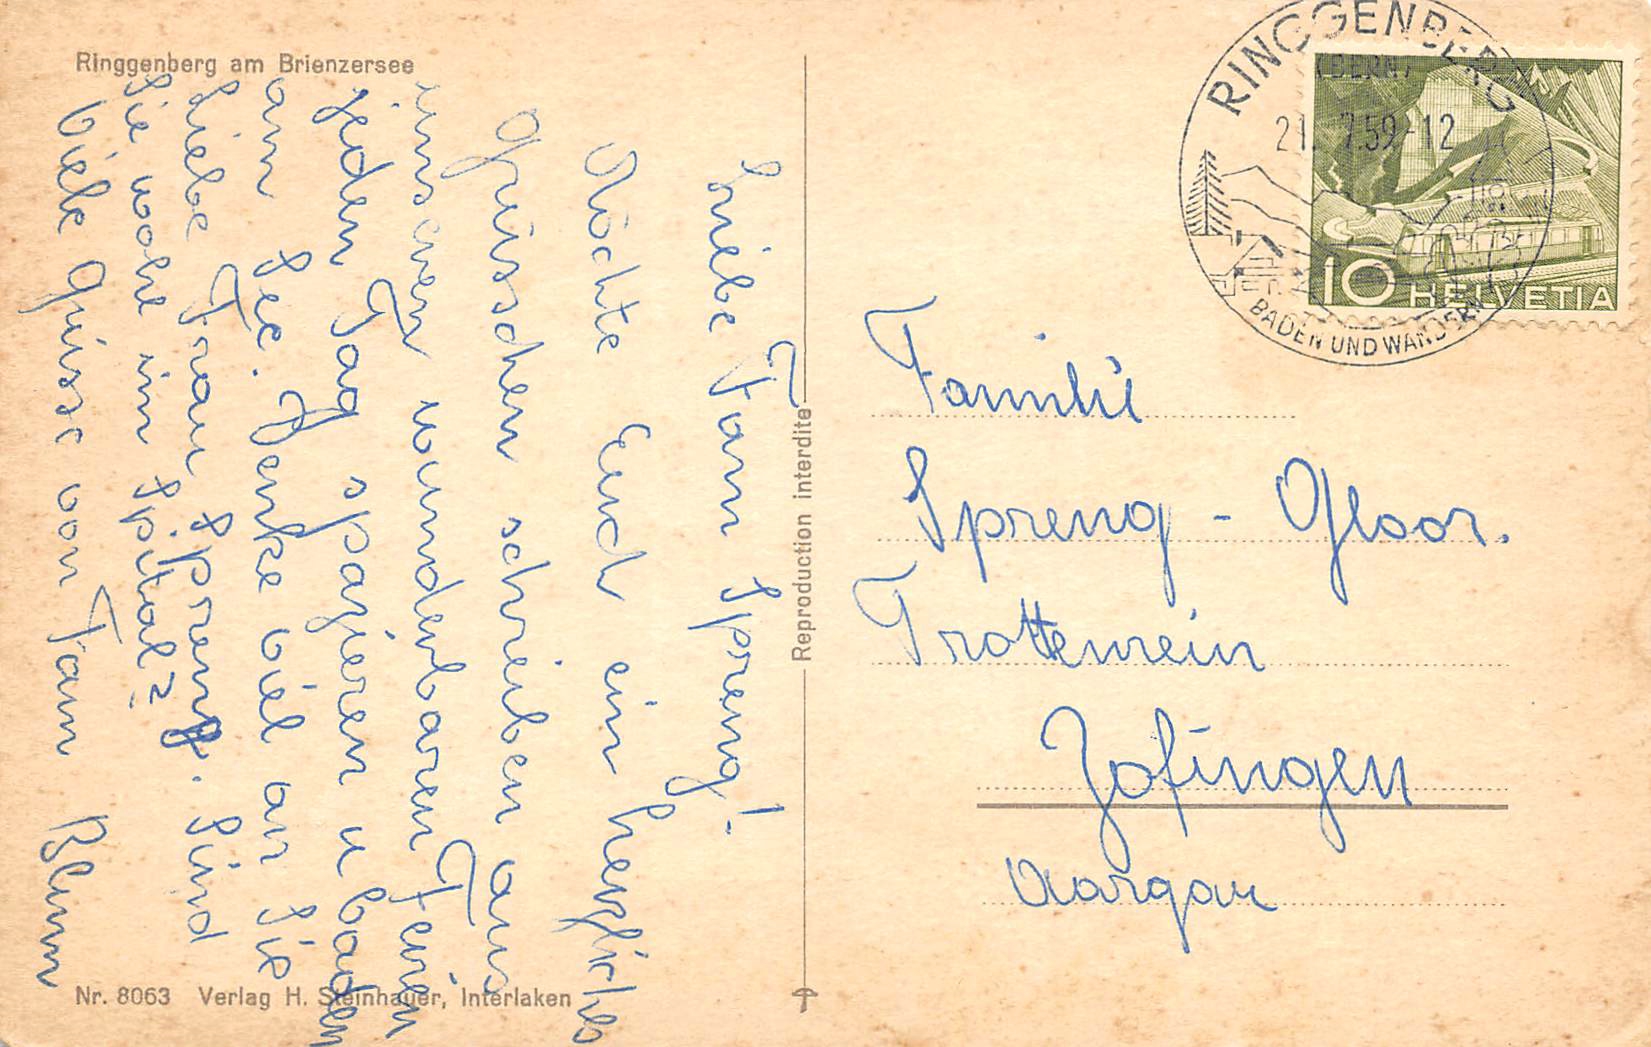 Ringgenberg am Brienzersee
Liebe Fam Spreng!
Möchte Euch ein herzliches
Grüsschen schreiben aus
unseren wunderbaren Ferien
jeden Tag spazieren u baden
am See. Denke viel an Sie
Liebe Frau Spreng. Sind
Sie wohl im Spital?
Viele Grüsse von Fam Blum
Nr. 8063 Verlag H. Steinhauer, Interlaken
Reproduction interdite
RINGGENBERG
(BERN)
21. 7.59-12
BADEN UND WANDERN
10 HELVETIA
Familie
Spreng - Gloor.
Trottenrein
Zofingen
Aargau